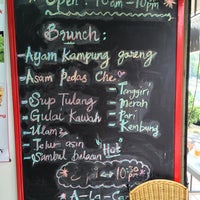 Open : 10am - 10pm
Brunch :
- Ayam Kampung goreng
- Asam Pedas Che
- Tenggiri
- Merah
- Sup Tulang
- Pari
- Gulai Kawah
- Kembung
- Ulam2
- Telur asin
- Sambal belacan
Hot
A-la-